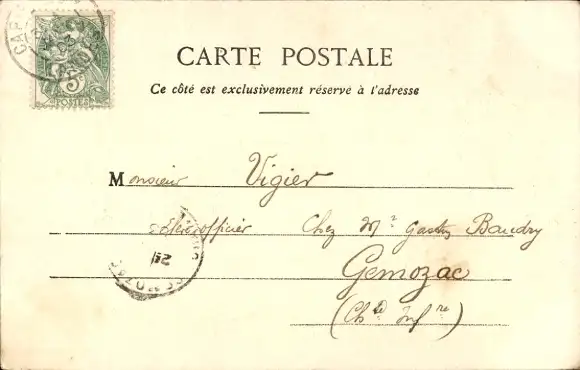 CARTE POSTALE
Ce côté est exclusivement réservé à l'adresse
Monsieur Vigier
Chez Mr Gaston Baudry
Gemozac
(Chte Infre)
5
POSTES